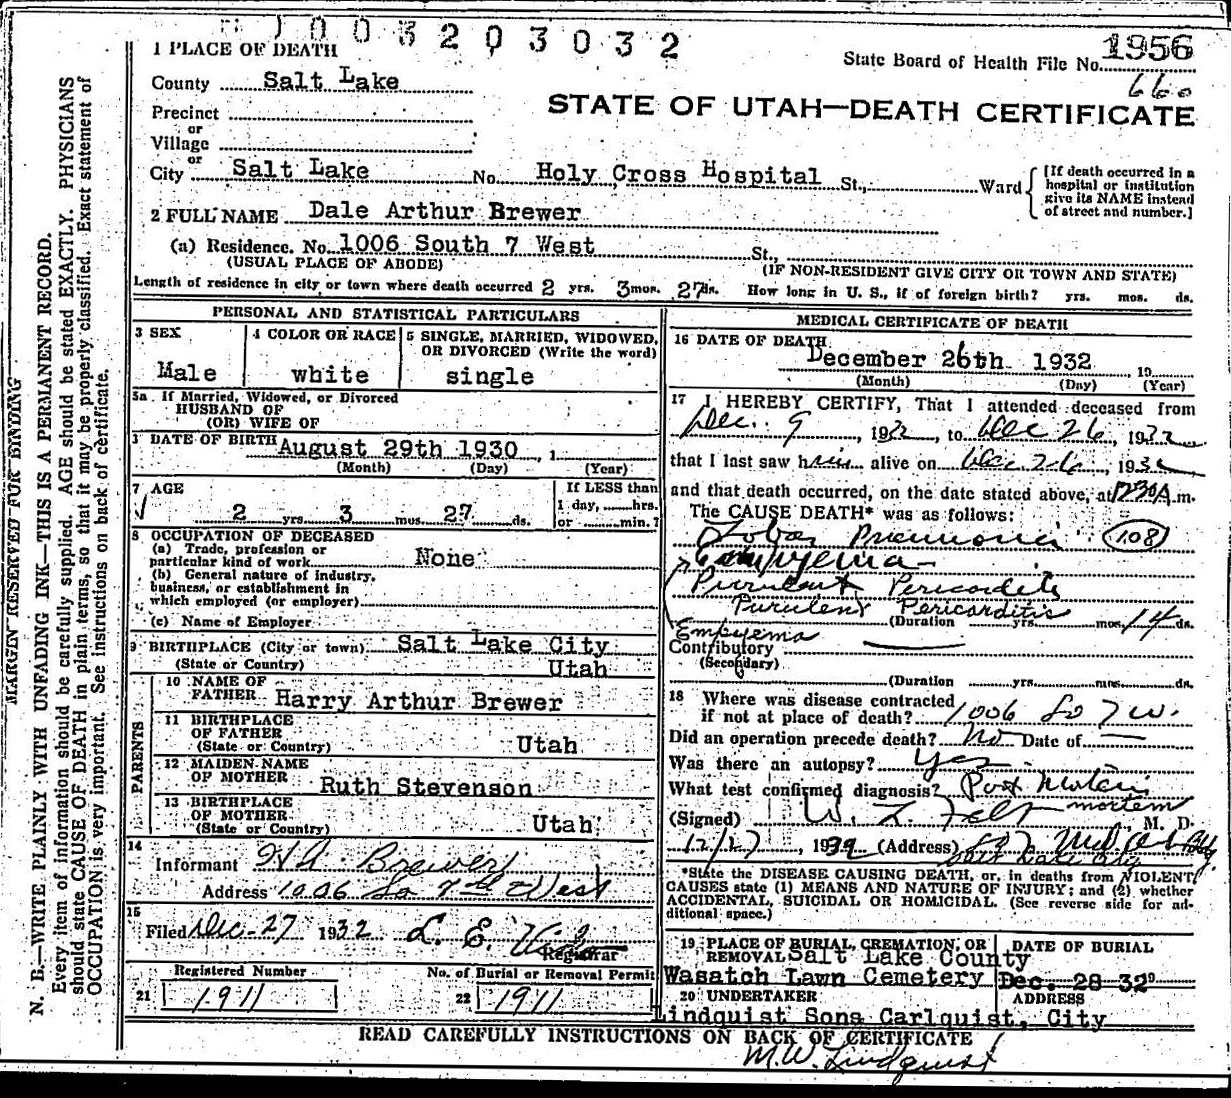 1003203032
1956
State Board of Health File No.
660
1 PLACE OF DEATH
County Salt Lake
STATE OF UTAH—DEATH CERTIFICATE
Precinct
or
Village
or
City Salt Lake No. Holy Cross Hospital St., Ward
[If death occurred in a hospital or institution give its NAME instead of street and number.]
2 FULL NAME Dale Arthur Brewer
(a) Residence. No. 1006 South 7 West St.,
(USUAL PLACE OF ABODE) (IF NON-RESIDENT GIVE CITY OR TOWN AND STATE)
Length of residence in city or town where death occurred 2 yrs. 3 mos. 27 ds. How long in U. S., if of foreign birth? yrs. mos. ds.
PERSONAL AND STATISTICAL PARTICULARS
3 SEX
Male
4 COLOR OR RACE
white
5 SINGLE, MARRIED, WIDOWED, OR DIVORCED (Write the word)
single
5a If Married, Widowed, or Divorced
HUSBAND OF
(OR) WIFE OF
DATE OF BIRTH August 29th 1930, 1
(Month) (Day) (Year)
7 AGE
2 yrs. 3 mos. 27 ds.
If LESS than
1 day, hrs.
or min.?
8 OCCUPATION OF DECEASED
(a) Trade, profession or
particular kind of work None
(b) General nature of industry,
business, or establishment in
which employed (or employer)
(c) Name of Employer
9 BIRTHPLACE (City or town) Salt Lake City
(State or Country) Utah
PARENTS
10 NAME OF
FATHER Harry Arthur Brewer
11 BIRTHPLACE
OF FATHER
(State or Country) Utah
12 MAIDEN NAME
OF MOTHER Ruth Stevenson
13 BIRTHPLACE
OF MOTHER
(State or Country) Utah
14
Informant H A Brewer
Address 1006 So 7th West
15
Filed Dec-27 1932 L. E.
Registrar
Registered Number
21 1911
No. of Burial or Removal Permit
22 1911
MEDICAL CERTIFICATE OF DEATH
16 DATE OF DEATH
December 26th 1932, 19
(Month) (Day) (Year)
17 I HEREBY CERTIFY, That I attended deceased from
Dec. 9, 1932, to Dec 26, 1932
that I last saw him alive on Dec 26, 1932
and that death occurred, on the date stated above, at 1230A.m.
The CAUSE DEATH* was as follows:
Lobar Pneumonia 108
Empyema
Purulent Pericarditis
Purulent Pericarditis
(Duration yrs. mos. 14 ds.
Empyema
Contributory
(Secondary)
(Duration yrs. mos. ds.
18 Where was disease contracted
if not at place of death? 1006 So 7 W.
Did an operation precede death? No Date of
Was there an autopsy? Yes
What test confirmed diagnosis? Post Mortem
mortem
(Signed) W. L. , M. D.
12/27, 1932 (Address)
Salt Lake City
*State the DISEASE CAUSING DEATH, or, in deaths from VIOLENT
CAUSES state (1) MEANS AND NATURE OF INJURY; and (2) whether
ACCIDENTAL, SUICIDAL OR HOMICIDAL. (See reverse side for ad-
ditional space.)
19 PLACE OF BURIAL, CREMATION, OR
REMOVAL Salt Lake County
Wasatch Lawn Cemetery
DATE OF BURIAL
Dec. 28 32
20 UNDERTAKER
ADDRESS
Lindquist Sons Carlquist, City
READ CAREFULLY INSTRUCTIONS ON BACK OF CERTIFICATE
M.W. Lindquist
MARGIN RESERVED FOR BINDING
N. B.—WRITE PLAINLY WITH UNFADING INK—THIS IS A PERMANENT RECORD.
Every item of information should be carefully supplied. AGE should be stated EXACTLY. PHYSICIANS
should state CAUSE OF DEATH in plain terms, so that it may be properly classified. Exact statement of
OCCUPATION is very important. See instructions on back of certificate.